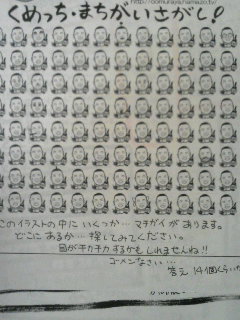 http://oomuraya.hamazo.tv/
くめっち・まちがいさがし!
このイラストの中にいくつか… マチガイがあります。
どこにあるか… 探してみてください。
目がチカチカするかもしれませんね!!
ゴーメンなさい…
答え 14個くらい